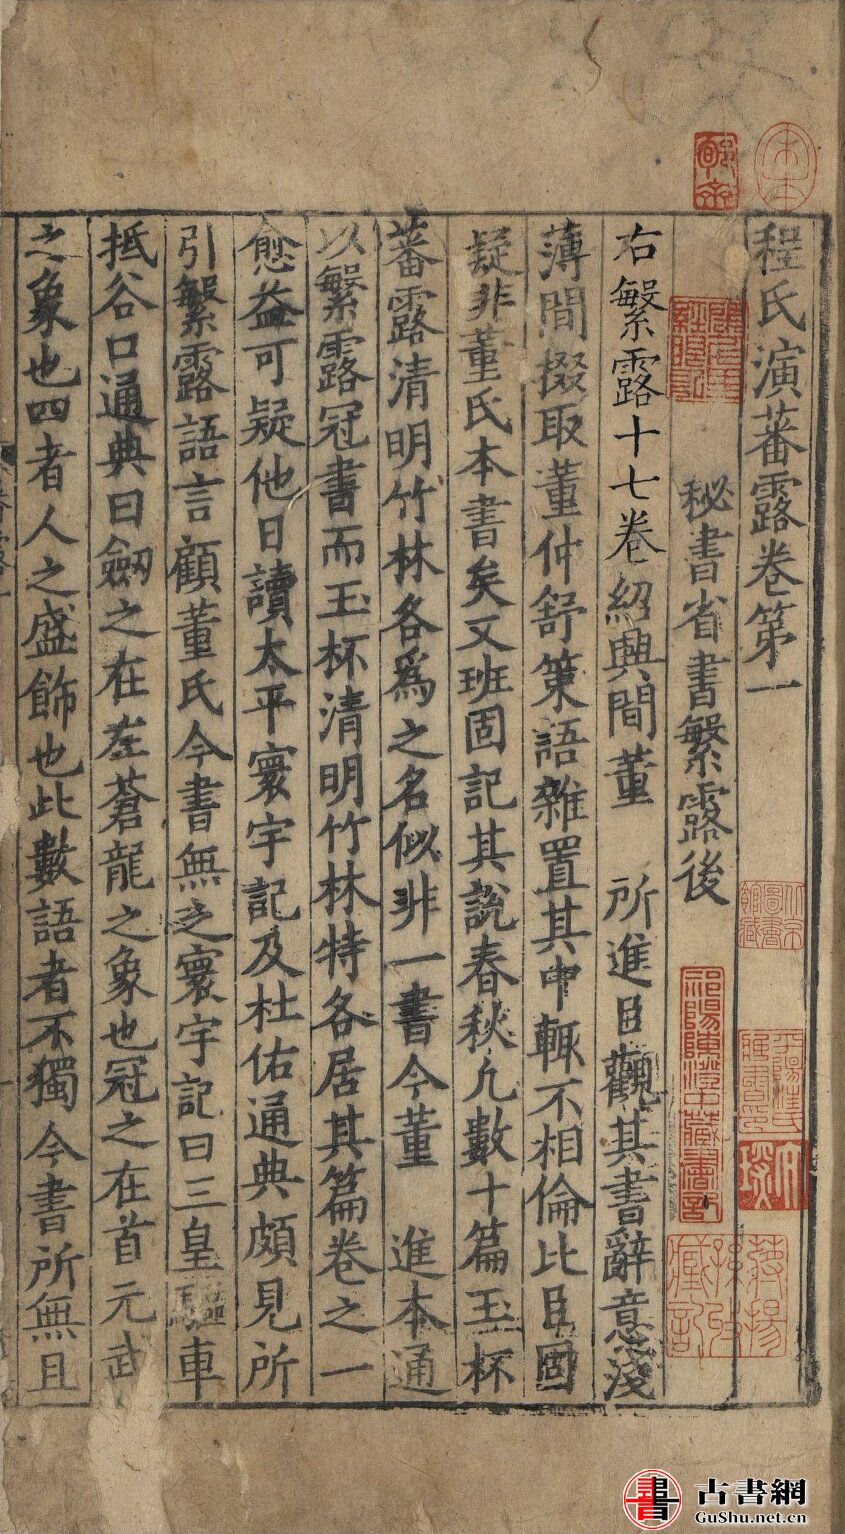 程氏演蕃露卷第一
秘書省書繁露後
右繁露十七卷紹興間董　所進臣觀其書辭意淺
薄間掇取董仲舒策語雜置其中輒不相倫比臣固
疑非董氏本書矣又班固記其說春秋凡數十篇玉杯
蕃露清明竹林各爲之名似非一書今董　進本通
以繁露冠書而玉杯清明竹林特各居其篇卷之一
愈益可疑他日讀太平寰宇記及杜佑通典頗見所
引繁露語言顧董氏今書無之寰宇記曰三皇驅車
抵谷口通典曰劒之在左蒼龍之象也冠之在首元武
之象也四者人之盛飾也此數語者不獨今書所無且
祁陽陳澄中藏書記
北京圖書館藏
古書網
GuShu.net.cn